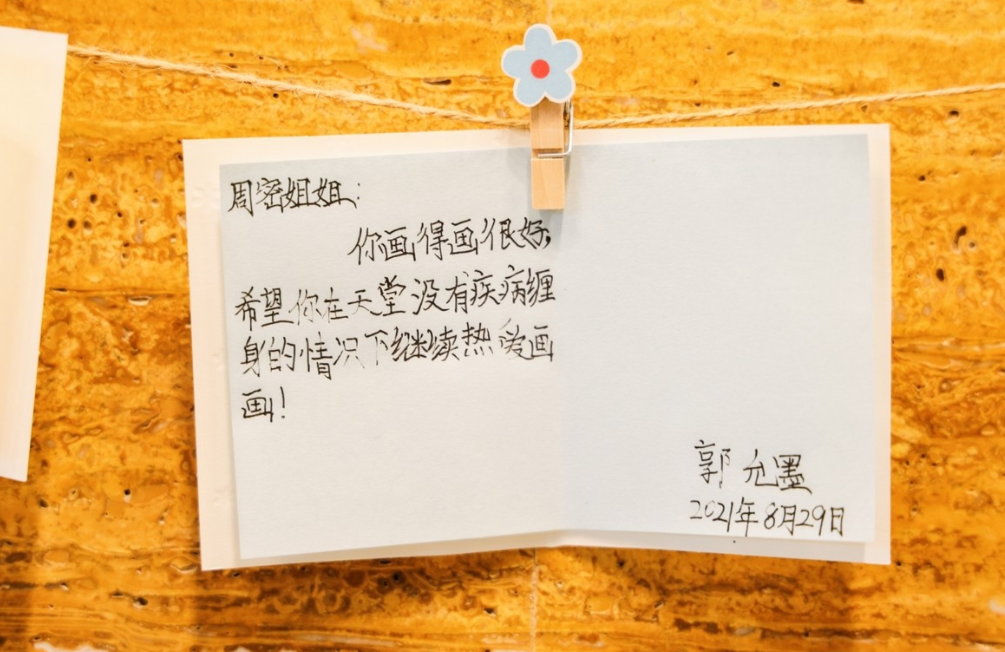 周密姐姐:
你画得画很好,
希望你在天堂没有疾病缠
身的情况下继续热爱画
画!
郭允墨
2021年8月29日